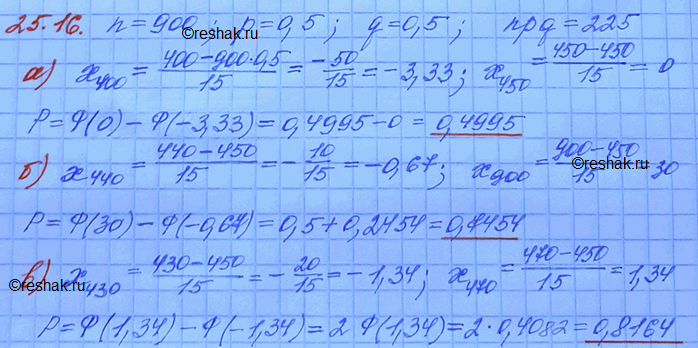 25.16. n = 900; p = 0,5; q = 0,5; npq = 225
а) x₄₀₀ = (400 − 900·0,5)/15 = −50/15 = −3,33; x₄₅₀ = (450 − 450)/15 = 0
P = Ф(0) − Ф(−3,33) = 0,4995 − 0 = 0,4995
б) x₄₄₀ = (440 − 450)/15 = −10/15 = −0,67; x₉₀₀ = (900 − 450)/15 30
P = Ф(30) − Ф(−0,67) = 0,5 + 0,2454 = 0,7454
в) x₄₃₀ = (430 − 450)/15 = −20/15 = −1,34; x₄₇₀ = (470 − 450)/15 = 1,34
P = Ф(1,34) − Ф(−1,34) = 2 Ф(1,34) = 2 · 0,4082 = 0,8164
©reshak.ru
©reshak.ru
©reshak.ru
©reshak.ru